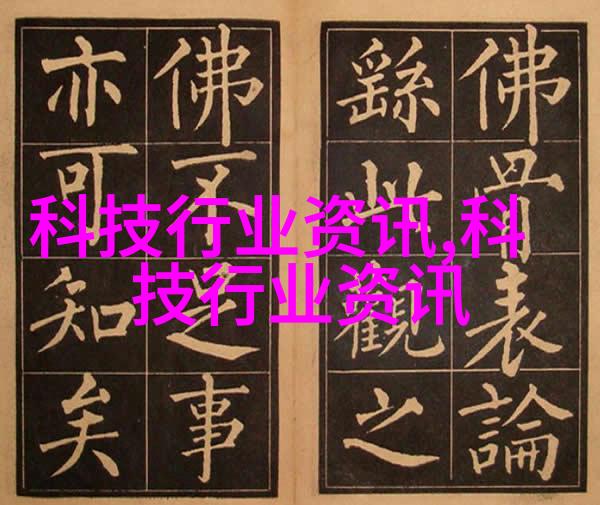 佛骨表論
繇此觀之
佛不足事
亦可知矣
科技行业资讯,科
技行业资讯